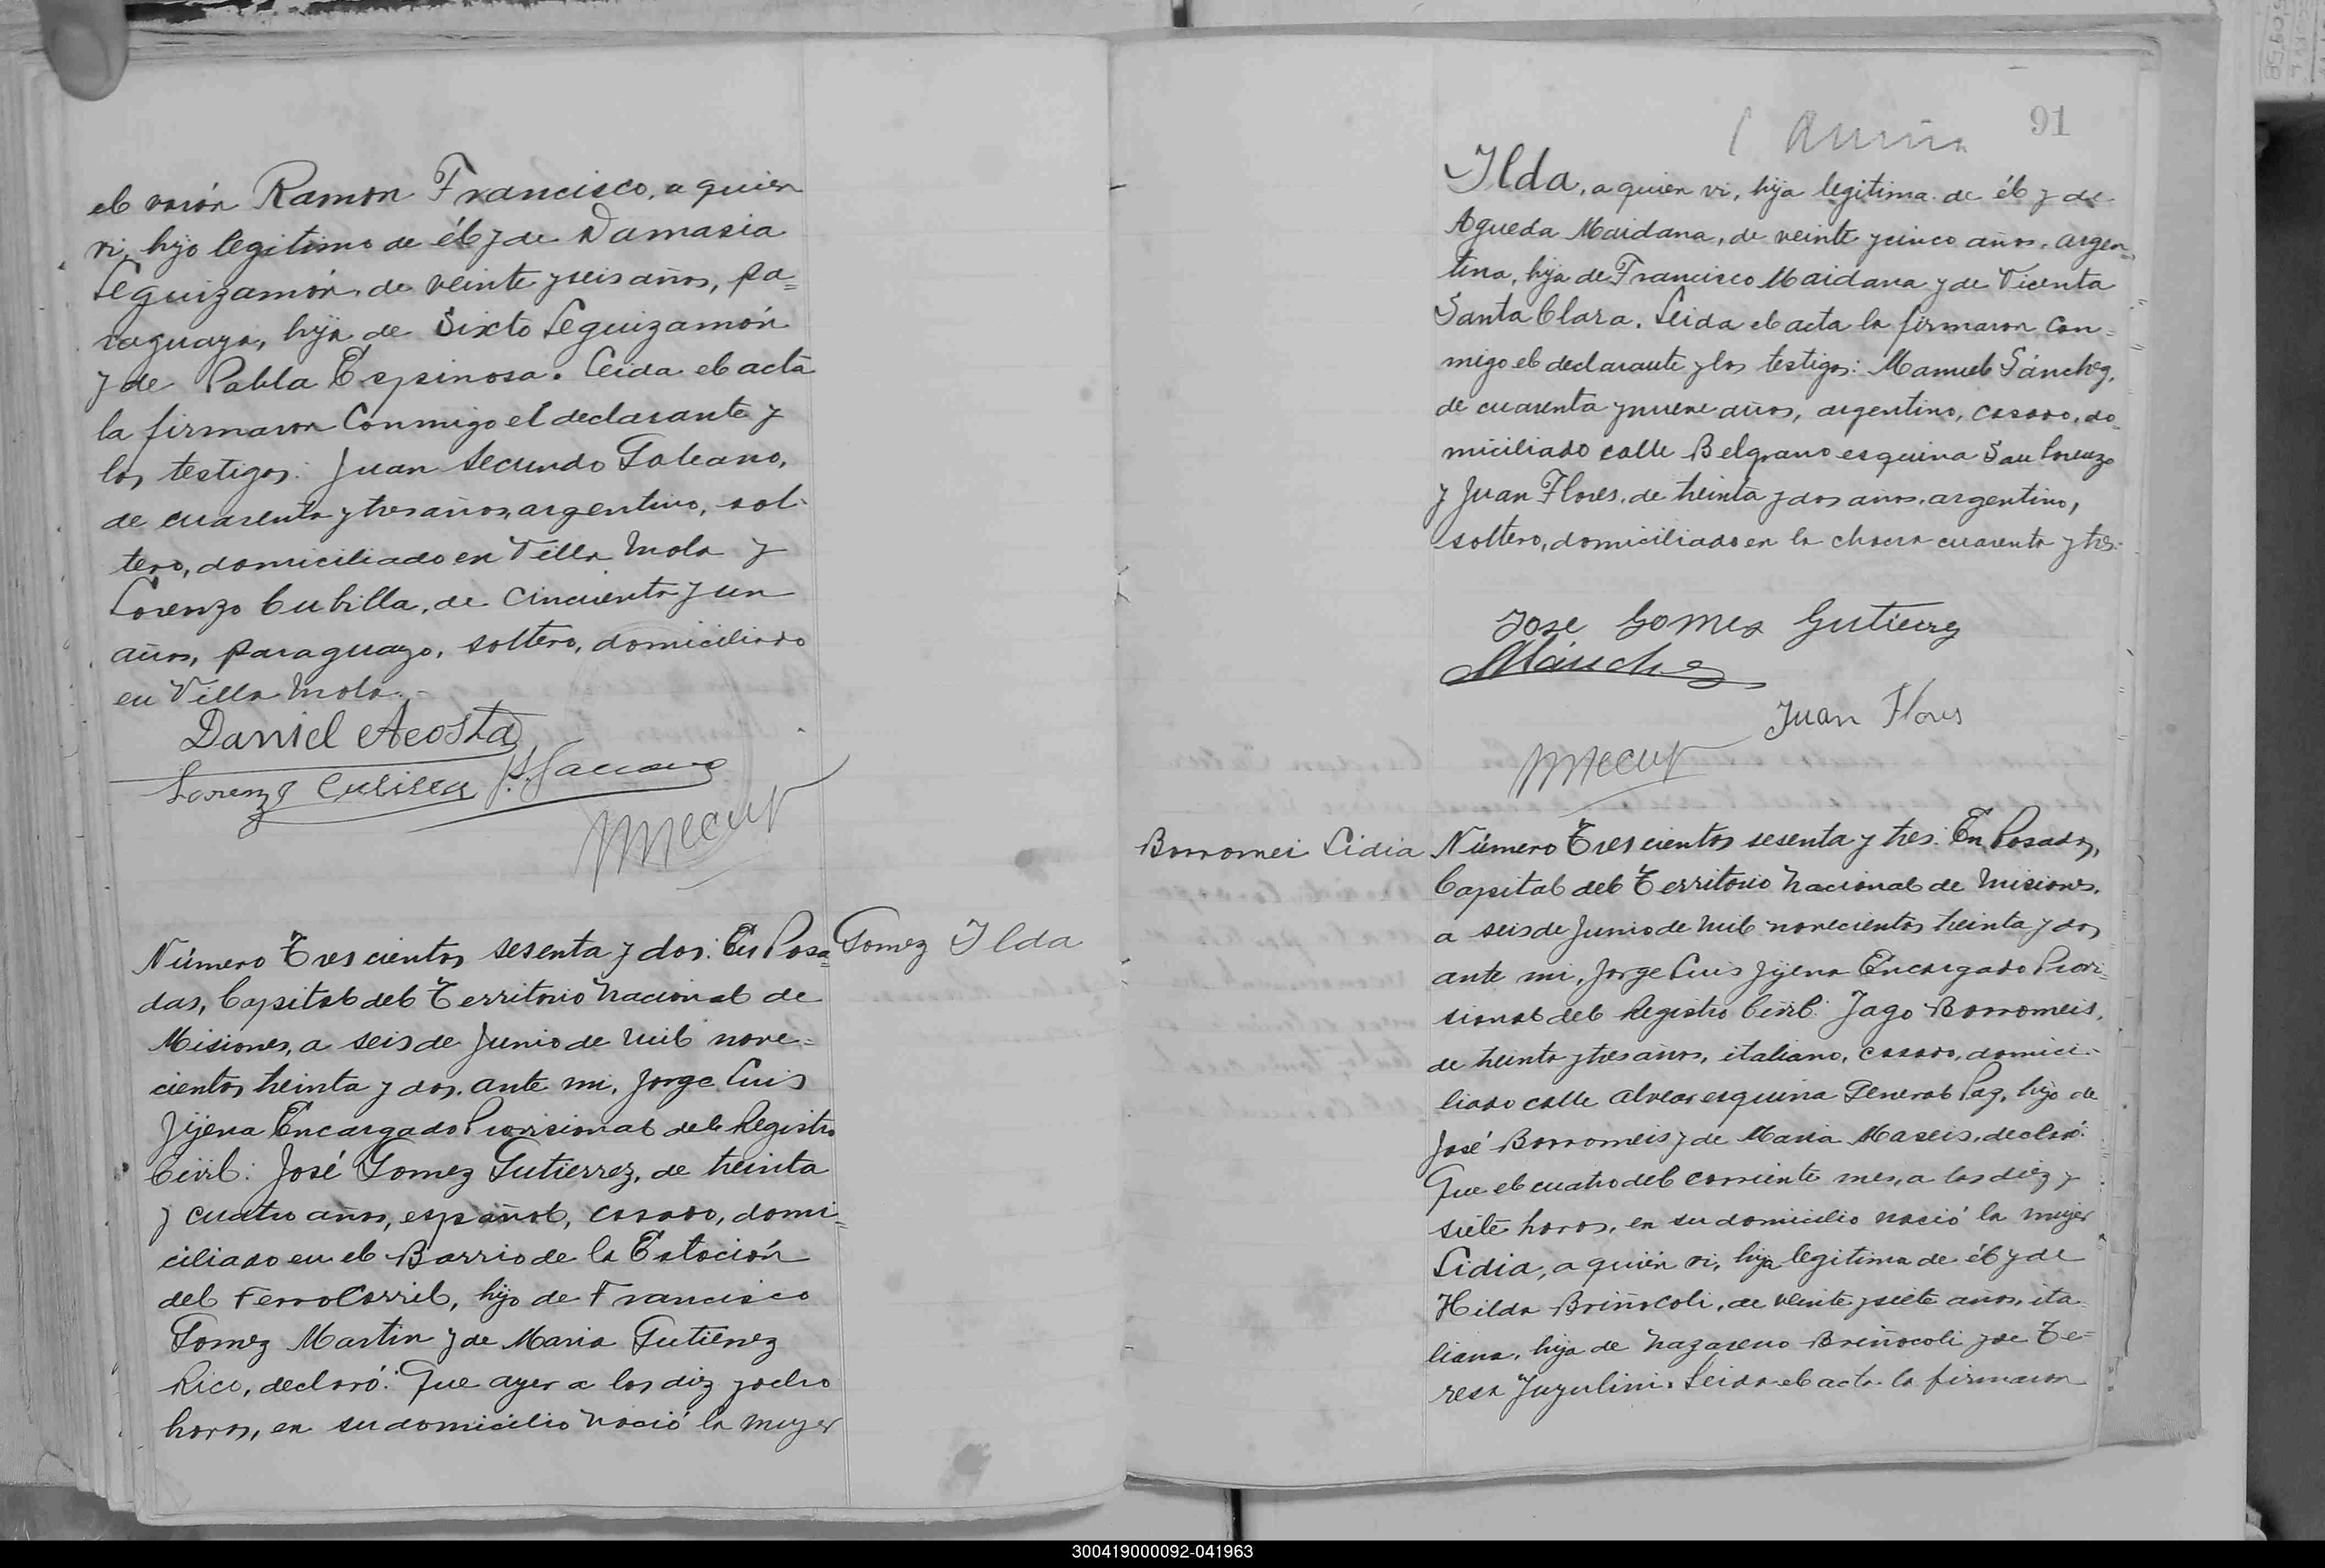 el varón Ramon Francisco, a quien
vi, hijo legitimo de él y de Damasia
Leguizamón, de veinte y seis años, pa=
raguaya, hija de Sixto Leguizamón
y de Pabla Espinosa. Leida el acta
la firmaron conmigo el declarante y
los testigos: Juan Secundo Galeano,
de cuarenta y tres años, argentino, sol-
tero, domiciliado en Villa Mola y
Lorenzo Cubilla, de cincuenta y un
años, paraguayo, soltero, domiciliado
en Villa Mola.-
Daniel Acosta
Lorenzo Cubilla
Número Trescientos sesenta y dos: En Posa=
Gomez Ilda
das, Capital del Territorio Nacional de
Misiones, a seis de Junio de mil nove=
cientos treinta y dos, ante mi, Jorge Luis
Jijena Encargado Provisional del Registro
Civil: José Gomez Gutierrez, de treinta
y cuatro años, español, casado, domi=
ciliado en el Barrio de la Estación
del FerroCarril, hijo de Francisco
Gomez Martin y de Maria Gutierrez
Rico, declaró: Que ayer a las diez y ocho
horas, en su domicilio nació la mujer
91
Ilda, a quien vi, hija legitima de él y de
Agueda Maidana, de veinte y cinco años, argen=
tina, hija de Francisco Maidana y de Vicenta
Santa Clara. Leida el acta la firmaron con=
migo el declarante y los testigos: Manuel Sánchez,
de cuarenta y nueve años, argentino, casado, do=
miciliado calle Belgrano esquina San Lorenzo
y Juan Flores, de treinta y dos años, argentino,
soltero, domiciliado en la chacra cuarenta y tres.
Jose Gomez Gutierrez
MSánchez
Juan Flores
Borromei Lidia
Número Trescientos sesenta y tres: En Posadas,
Capital del Territorio Nacional de Misiones,
a seis de Junio de mil novecientos treinta y dos
ante mi, Jorge Luis Jijena Encargado Provi-
sional del Registro Civil: Jago Borromeis,
de treinta y tres años, italiano, casado, domici-
liado calle Alvear esquina General Paz, hijo de
José Borromeis y de Maria Maseis, declaró:
Que el cuatro del corriente mes, a las diez y
siete horas, en su domicilio nació la mujer
Lidia, a quien vi, hija legitima de él y de
Hilda Briñocoli, de veinte y siete años, ita-
liana, hija de Nazareno Briñocoli y de Te=
resa Juyulini. Leida el acta la firmaron
300419000092-041963